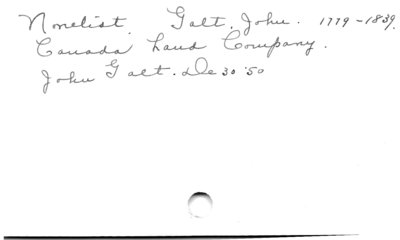 Novelist. Galt, John. 1779-1839.
Canada Land Company.
John Galt. De 30 '50